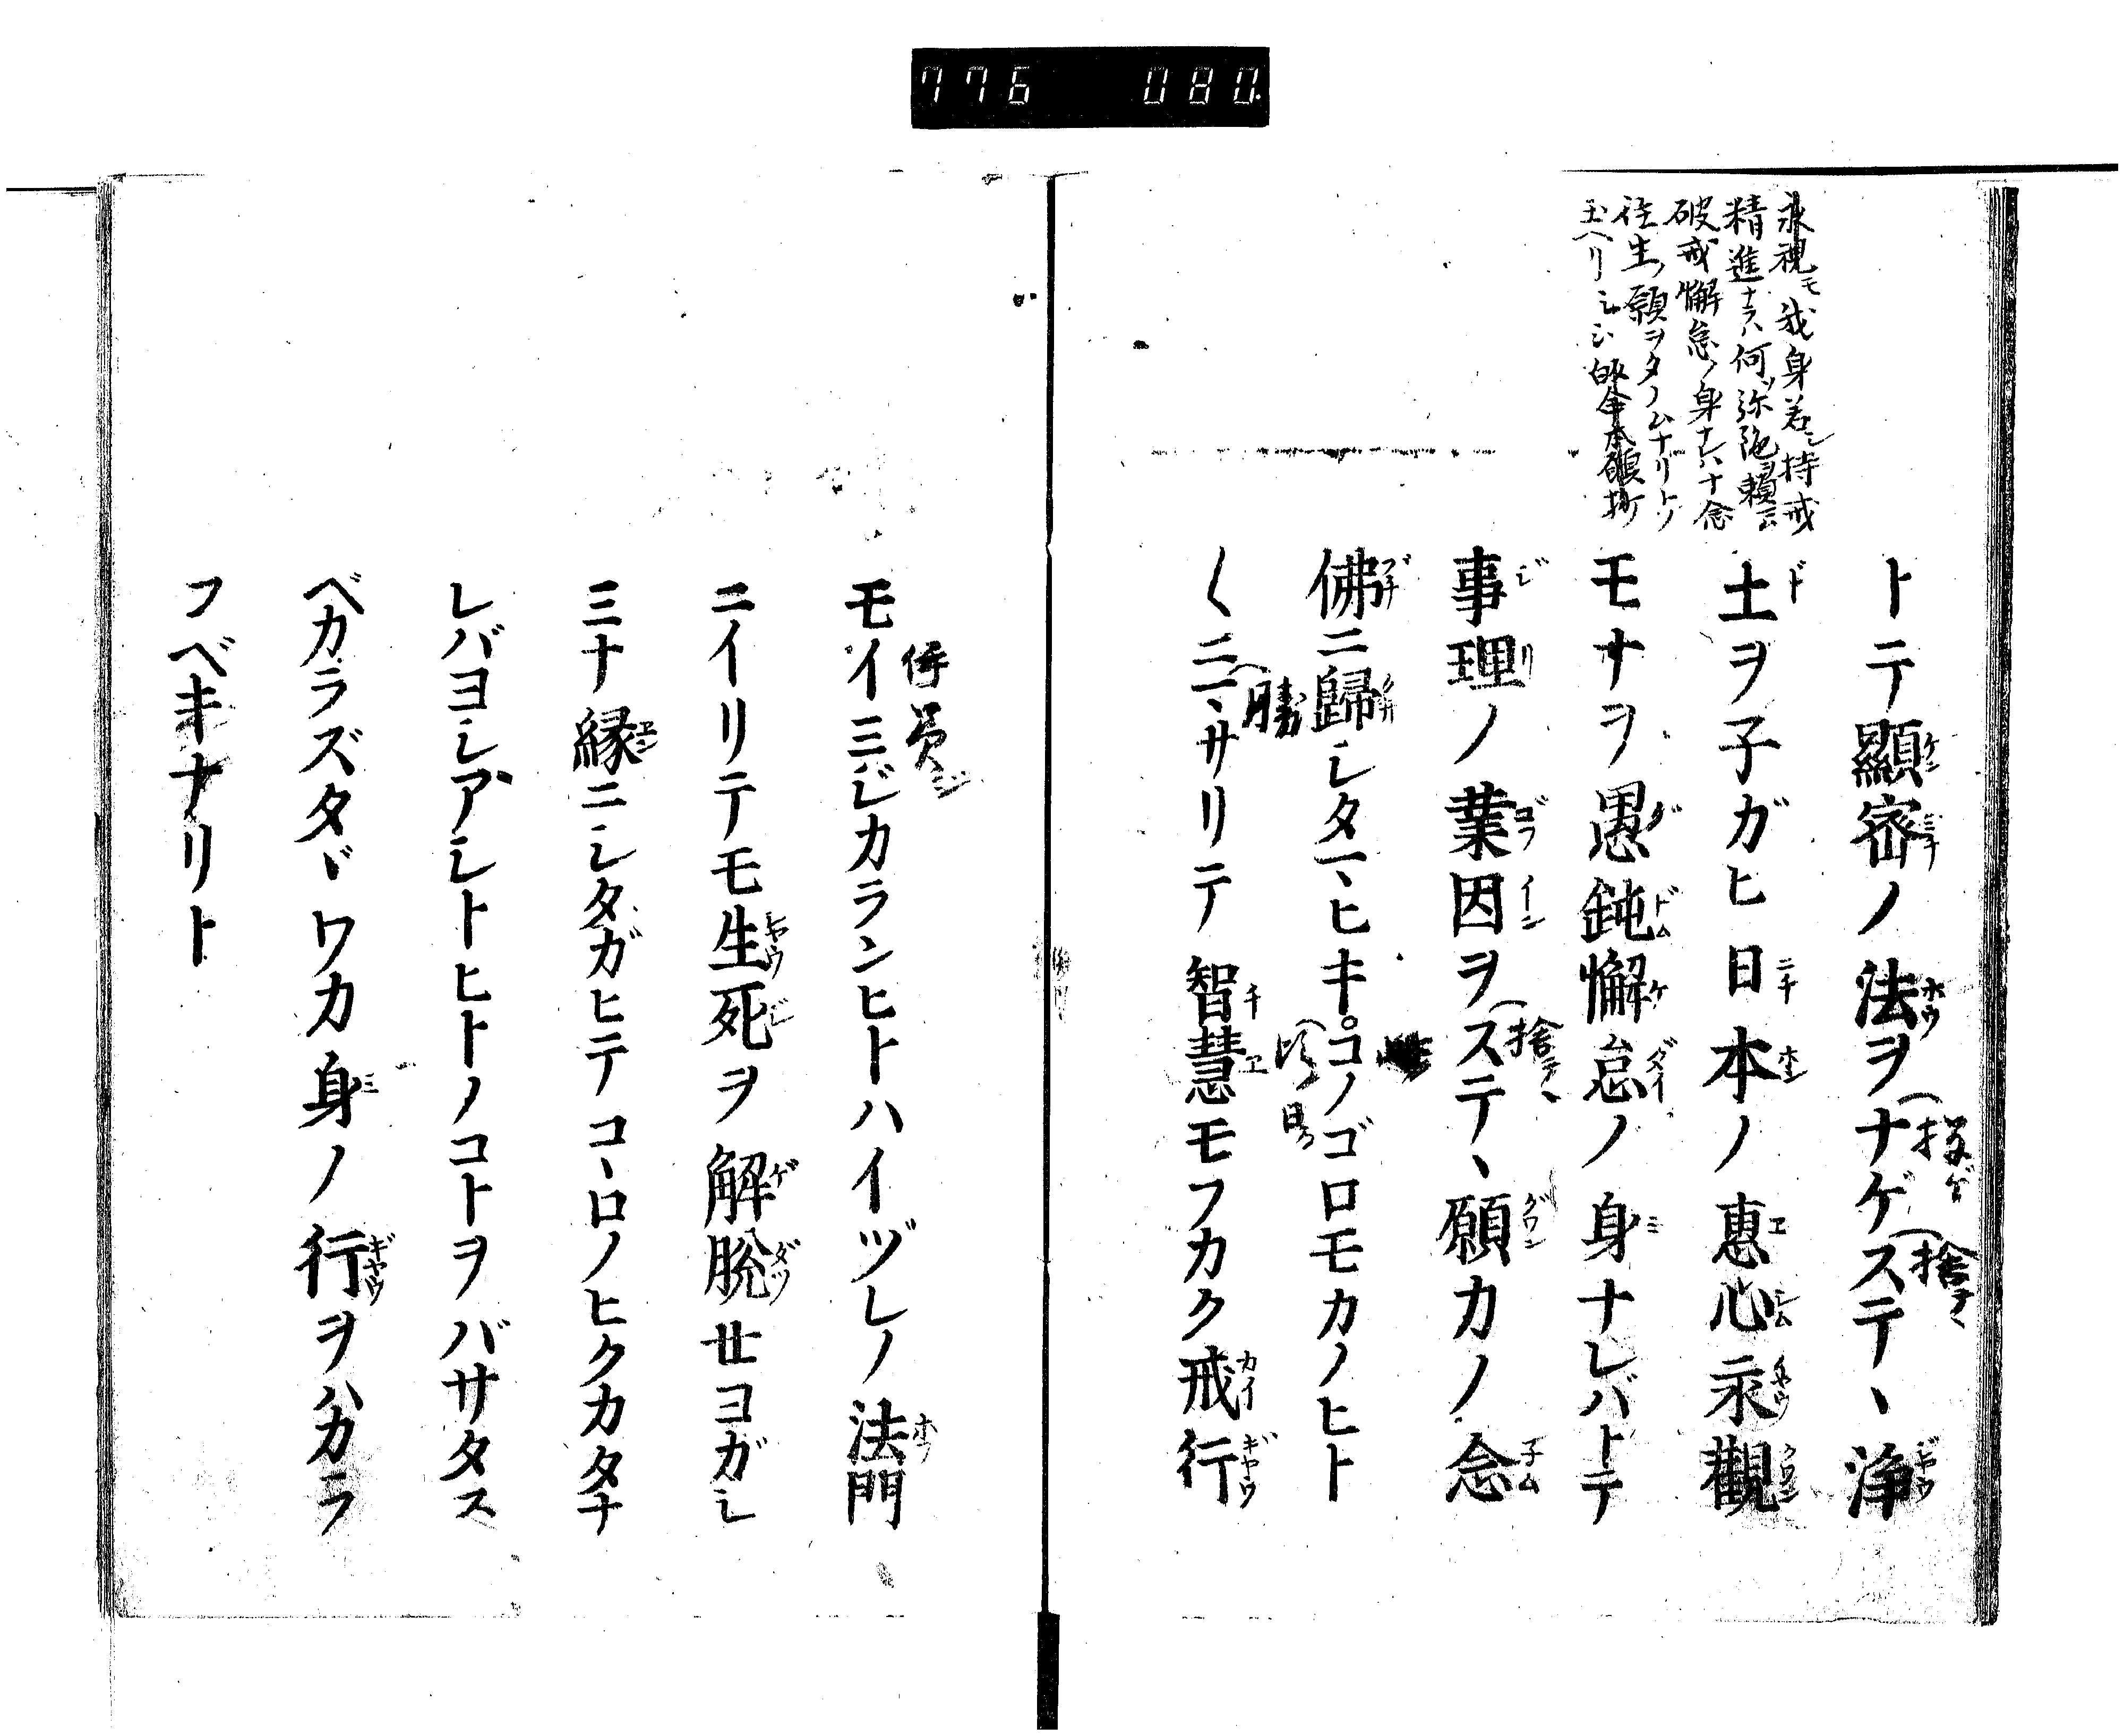 776 080
永観モ我身若シ持戒
精進ナラハ何ソ弥陀ヲ頼云
破戒懈怠ノ身ナレハ十念
往生ノ願ヲタノムナリトノ
玉ヘリ 本願抄
トテ顯密ノ法ヲナゲステヽ浄
土ヲ子ガヒ日本ノ惠心永觀
モナヲ愚鈍懈怠ノ身ナレバトテ
事理ノ業因ヲステヽ願カノ念
佛ニ歸シタマヒキコノゴロモカノヒト
〱ニマサリテ智慧モフカク戒行
モイミジカランヒトハイヅレノ法門
ニイリテモ生死ヲ解脱セヨガシ
ミナ縁ニシタガヒテコヽロノヒクカタナ
レバヨシアシトヒトノコトヲバサタス
ベカラズタヾワカ身ノ行ヲハカラ
フベキナリト